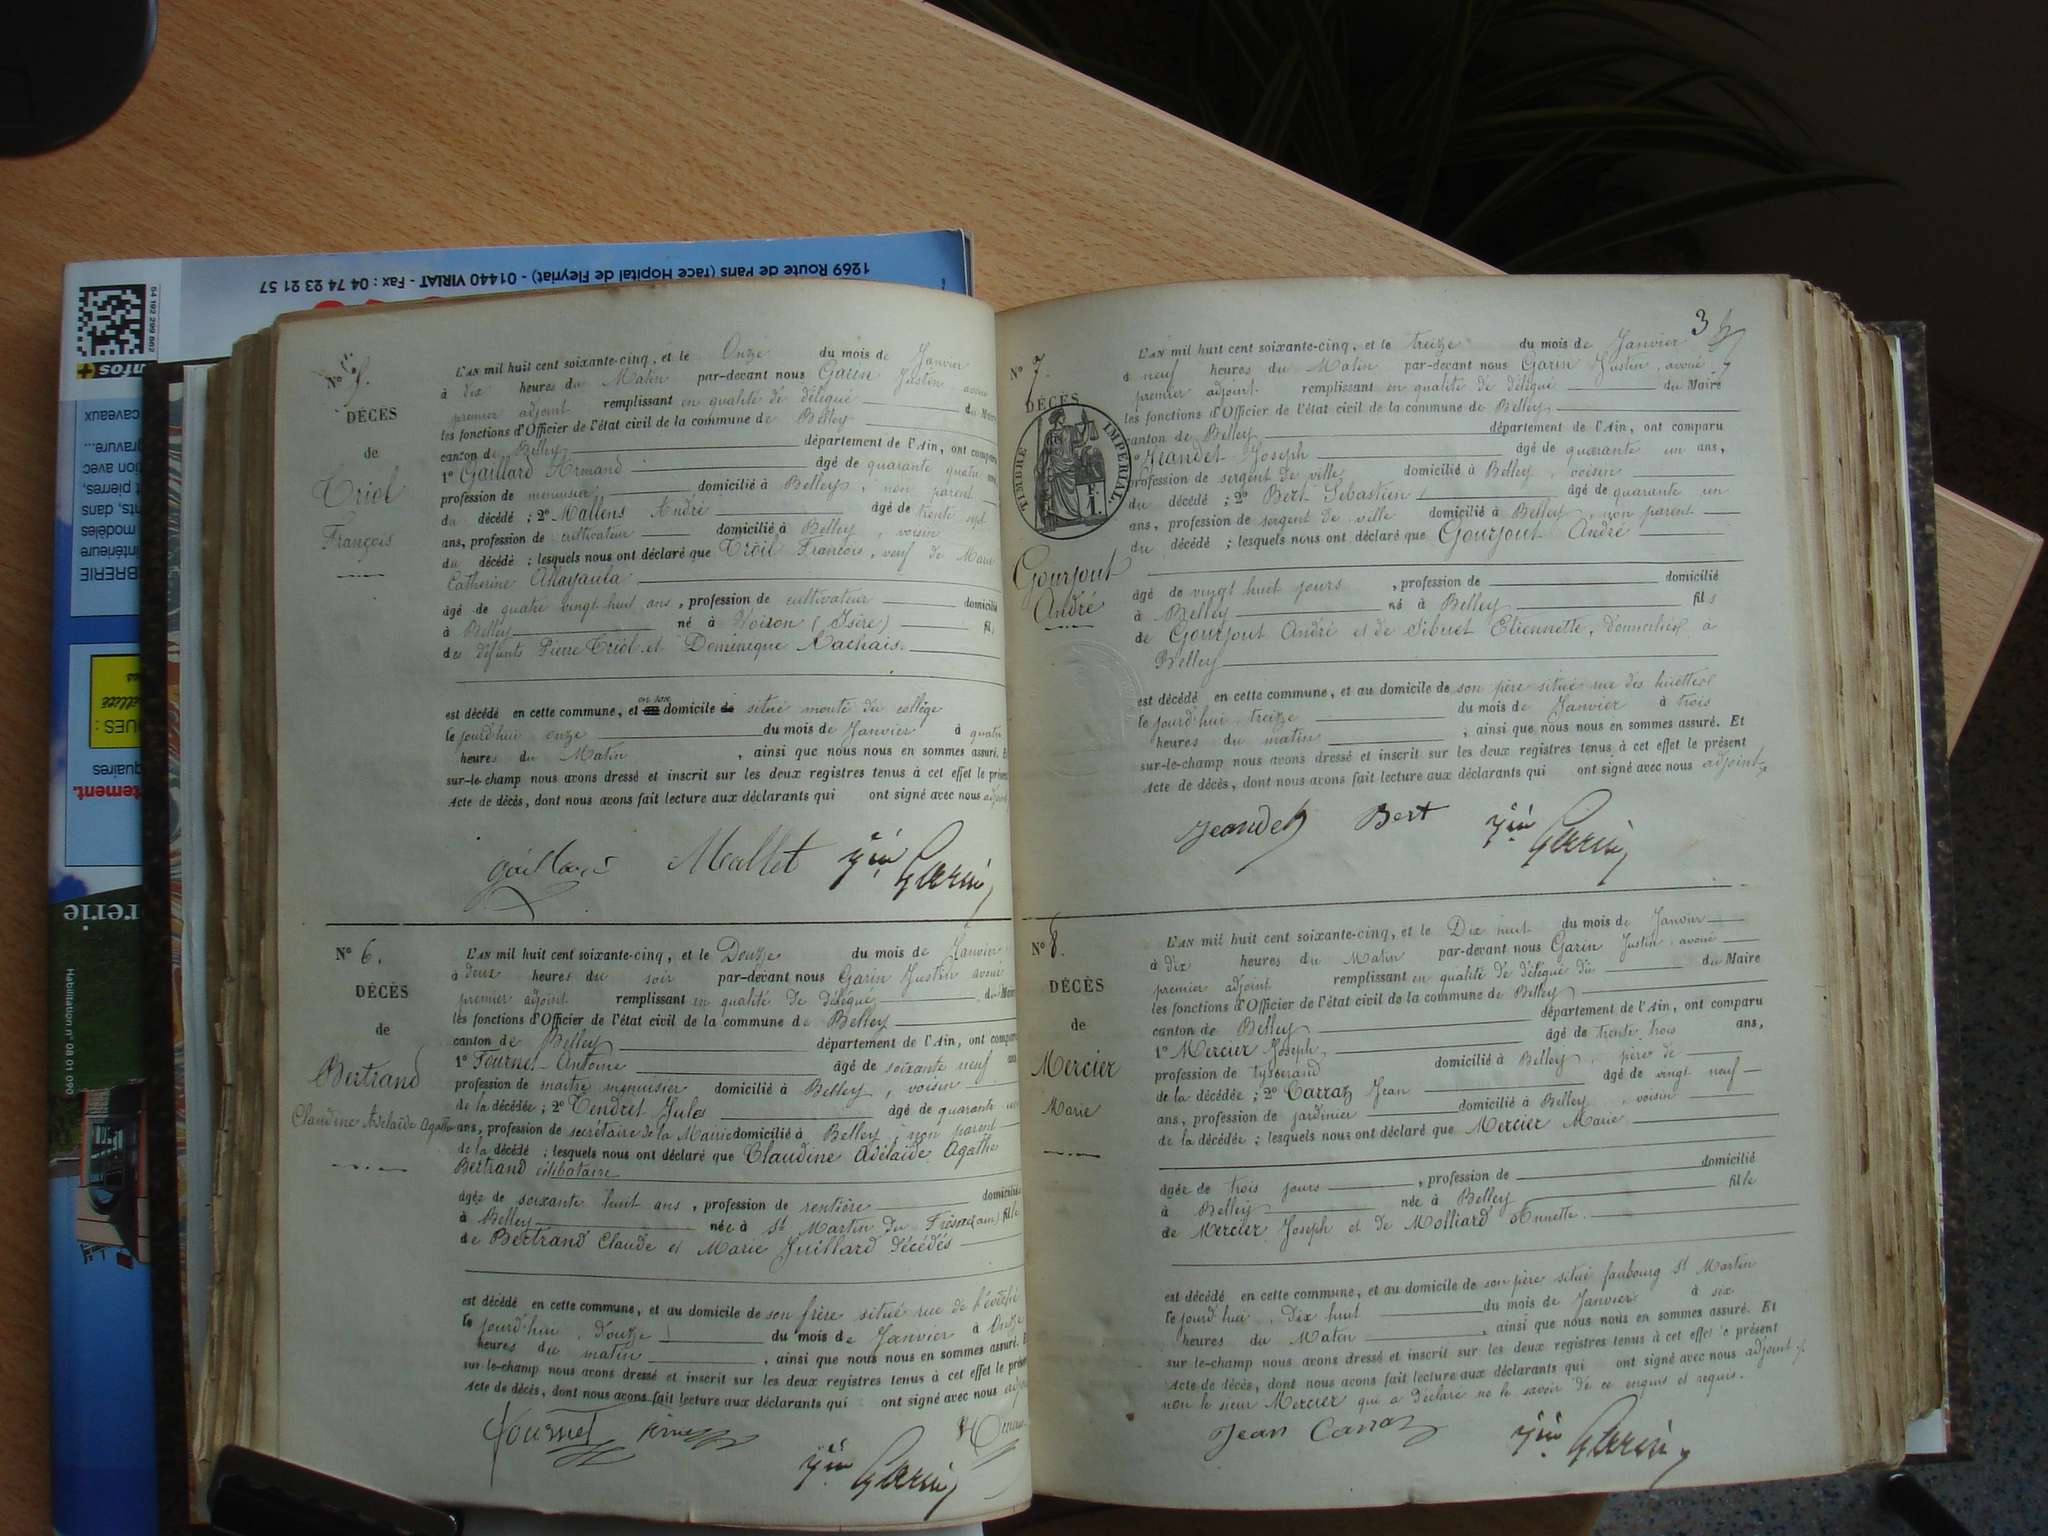 1269 Route de Paris (face Hôpital de Fleyriat) - 01440 VIRIAT - Fax : 04 74 23 21 57
54 192 299 662
infos +
caveaux
gravure
tion avec
t pierres,
nts, dans
modèles
intérieure
BRERIE
QUES :
quaires
rtement.
rerie
Habilitation n° 08 01 090
N° 5.
DÉCÈS
de
Triol
François
L'AN mil huit cent soixante-cinq, et le Onze du mois de Janvier
à dix heures du Matin par-devant nous Garin Justin avoué
premier adjoint remplissant en qualité de délégué du Maire
les fonctions d'Officier de l'état civil de la commune de Belley
canton de Belley département de l'Ain, ont comparu
1° Gaillard Armand âgé de quarante quatre ans,
profession de menuisier domicilié à Belley, non parent
du décédé ; 2° Mallens André âgé de trente sept
ans, profession de cultivateur domicilié à Belley, voisin
du décédé ; lesquels nous ont déclaré que Triol François, veuf de Marie
Catherine
âgé de quatre vingt huit ans, profession de cultivateur domicilié
à Belley né à Voiron (Isère) fils
des défunts Pierre Triol et Dominique Rachais.
est décédé en cette commune, et en son domicile situé monté du collège
le jourd'hui onze du mois de Janvier à quatre
heures du Matin, ainsi que nous nous en sommes assuré. Et
sur-le-champ nous avons dressé et inscrit sur les deux registres tenus à cet effet le présent
acte de décès, dont nous avons fait lecture aux déclarants qui ont signé avec nous adjoint
Gaillard Mallet Jin Garin
N° 6.
DÉCÈS
de
Bertrand
Claudine Adelaïde Agathe
L'AN mil huit cent soixante-cinq, et le Douze du mois de Janvier
à deux heures du soir par-devant nous Garin Justin avoué
premier adjoint remplissant en qualité de délégué du Maire
les fonctions d'Officier de l'état civil de la commune de Belley
canton de Belley département de l'Ain, ont comparu
1° Fournet Antoine âgé de soixante neuf ans
profession de maître menuisier domicilié à Belley, voisin
de la décédée ; 2° Tendret Jules âgé de quarante
ans, profession de secrétaire de la Mairie domicilié à Belley, non parent
de la décédé ; lesquels nous ont déclaré que Claudine Adélaïde Agathe
Bertrand célibataire
âgée de soixante huit ans, profession de rentière domiciliée
à Belley née à St Martin du Frêsne (ain) fille
de Bertrand Claude et Marie Juillard décédés
est décédé en cette commune, et au domicile de son frère situé rue de l'évêché
le jourd'hui, Douze du mois de Janvier à Onze
heures du matin, ainsi que nous nous en sommes assuré. Et
sur-le-champ nous avons dressé et inscrit sur les deux registres tenus à cet effet le présent
acte de décès, dont nous avons fait lecture aux déclarants qui ont signé avec nous adjoint
Fournet
Jin Garin
3
N° 7.
DÉCÈS
TIMBRE IMPÉRIAL.
F.
1.
Gourjout
André
L'AN mil huit cent soixante-cinq, et le treize du mois de Janvier
à neuf heures du Matin par-devant nous Garin Justin, avoué
premier adjoint remplissant en qualité de délégué du Maire
les fonctions d'Officier de l'état civil de la commune de Belley
canton de Belley département de l'Ain, ont comparu
1° Jeandet Joseph âgé de quarante un ans,
profession de sergent de ville domicilié à Belley, voisin
du décédé ; 2° Bert Sébastien âgé de quarante un
ans, profession de sergent de ville domicilié à Belley, non parent
du décédé ; lesquels nous ont déclaré que Gourjout André
âgé de vingt huit jours, profession de domicilié
à Belley né à Belley fils
de Gourjout André et de Sibuet Etiennette, Domiciliés à
Belley
est décédé en cette commune, et au domicile de son père situé rue des
le jourd'hui treize du mois de Janvier à trois
heures du matin, ainsi que nous nous en sommes assuré. Et
sur-le-champ nous avons dressé et inscrit sur les deux registres tenus à cet effet le présent
acte de décès, dont nous avons fait lecture aux déclarants qui ont signé avec nous adjoint
Jeandet Bert Jin Garin
N° 8.
DÉCÈS
de
Mercier
Marie
L'AN mil huit cent soixante-cinq, et le Dix huit du mois de Janvier
à dix heures du Matin par-devant nous Garin Justin, avoué
premier adjoint remplissant en qualité de délégué du du Maire
les fonctions d'Officier de l'état civil de la commune de Belley
canton de Belley département de l'Ain, ont comparu
1° Mercier Joseph, âgé de trente trois ans,
profession de tysserand domicilié à Belley, père de
de la décédée ; 2° Carraz Jean âgé de vingt neuf
ans, profession de jardinier domicilié à Belley, voisin
de la décédée ; lesquels nous ont déclaré que Mercier Marie
âgée de trois jours, profession de domicilié
à Belley née à Belley fille
de Mercier Joseph et de Molliard Annette.
est décédé en cette commune, et au domicile de son père situé faubourg St Martin
le jourd'hui, Dix huit du mois de Janvier à six
heures du Matin, ainsi que nous nous en sommes assuré. Et
sur le-champ nous avons dressé et inscrit sur les deux registres tenus à cet effet le présent
acte de décès, dont nous avons fait lecture aux déclarants qui ont signé avec nous adjoint
non le sieur Mercier qui a déclaré ne le savoir de ce enquis et requis.
Jean Carraz Jin Garin